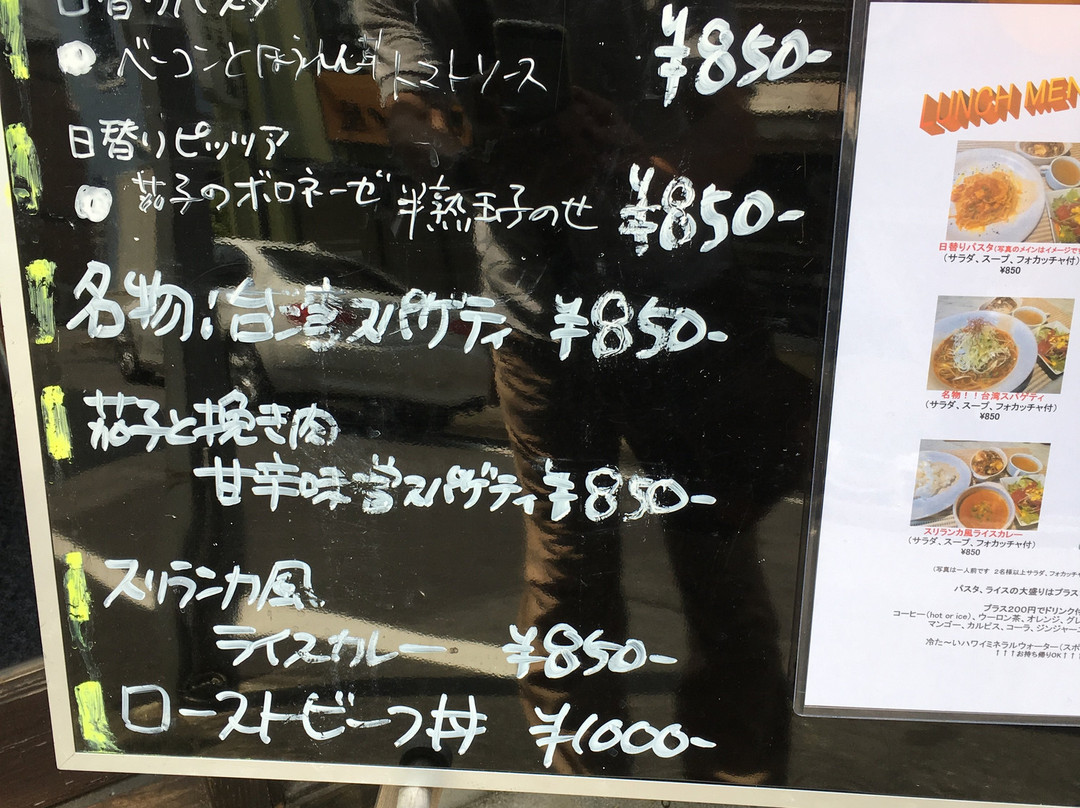 日替りパスタ
ベーコンとほうれん草トマトソース ¥850-
日替りピッツァ
茄子のボロネーゼ 半熟玉子のせ ¥850-
名物!台湾スパゲティ ¥850-
茄子と挽き肉
甘辛味噌スパゲティ ¥850-
スリランカ風
ライスカレー ¥850-
ローストビーフ丼 ¥1000-
LUNCH MEN
日替りパスタ(写真のメインはイメージで
(サラダ、スープ、フォカッチャ付)
¥850
名物!!台湾スパゲティ
(サラダ、スープ、フォカッチャ付)
¥850
スリランカ風ライスカレー
(サラダ、スープ、フォカッチャ付)
¥850
(写真は一人前です 2名様以上サラダ、フォカッチャ
パスタ、ライスの大盛りはプラス
プラス200円でドリンク付
コーヒー(hot or ice)、ウーロン茶、オレンジ、グレ
マンゴー、カルピス、コーラ、ジンジャー
冷た~いハワイミネラルウォーター(スポ
↑↑↑お持ち帰りOK↑↑